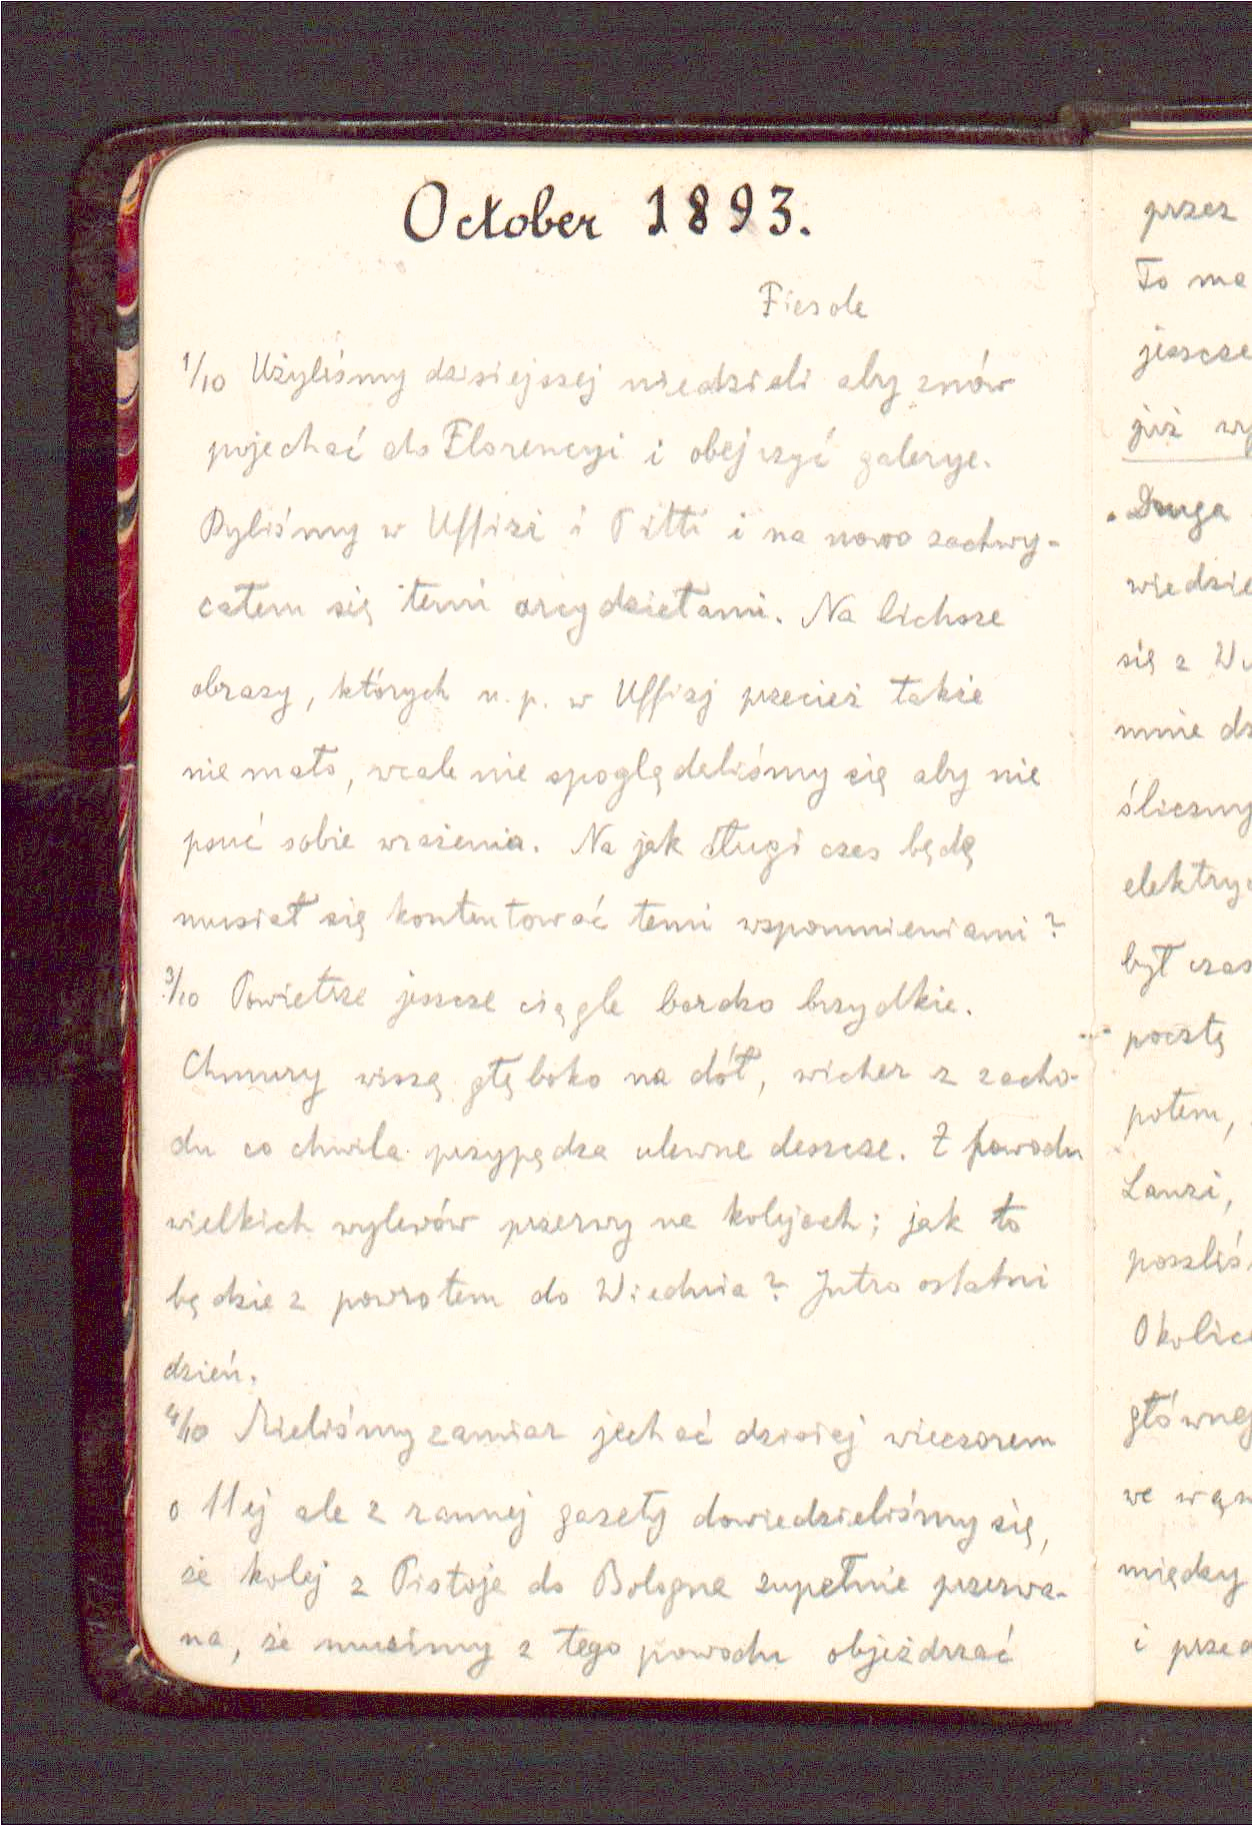 October 1893.
Fiesole
1/10 Użyliśmy dzisiejszej niedzieli aby znów
pojechać do Florencyi i obejrzyć galerye.
Byliśmy w Uffizi i Pitti i na nowo zachwy-
całem się temi arcydziełami. Na lichsze
obrazy, których n. p. w Uffizj przecież także
nie mało, wcale nie spoglądeliśmy się aby nie
psuć sobie wrażenia. Na jak długi czas będę
musiał się kontentować temi wspomnieniami?
3/10 Powietrze jeszcze ciągle bardzo brzydkie.
Chmury wiszą głęboko na dół, wicher z zacho-
du co chwila przypędza ulewne deszcze. Z powodu
wielkich wylewów przerwy na kolejach; jak to
będzie z powrotem do Wiednia? Jutro ostatni
dzień.
4/10 Mieliśmy zamiar jechać dzisiej wieczorem
o 11ej ale z rannej gazety dowiedzieliśmy się,
że kolej z Pistoje do Bologne zupełnie przerwa-
na, że musimy z tego powodu objeżdrzać
przez
To
jeszcze
już
Druga
się z
mnie
był
pocztę
potem,
Lanzi,
między
i